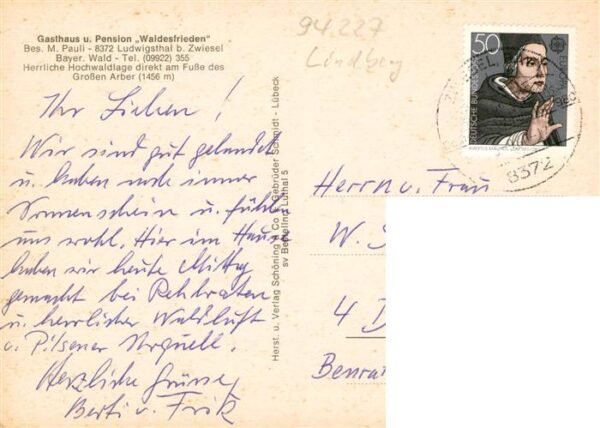 Gasthaus u. Pension „Waldesfrieden"
Bes. M. Pauli - 8372 Ludwigsthal b. Zwiesel
Bayer. Wald - Tel. (09922) 355
Herrliche Hochwaldlage direkt am Fuße des
Großen Arber (1456 m)
94.227
Lindberg
50
DEUTSCHE BUNDES
8372
Ihr Lieben!
Wir sind gut gelandet
u. haben noch immer
Sonnenschein u. fühlen
uns wohl. Hier im Hause
haben wir heute Mittag
gemacht bei Rehbraten
u. herrlicher Waldluft
u. Pilsener Urquell.
Herzliche Grüße
Berti u. Fritz
Herst. u. Verlag Schöning & Co + Gebrüder Schmidt - Lübeck
sv Luthal 5
Herrn u. Frau
W. S
4 D
Benra